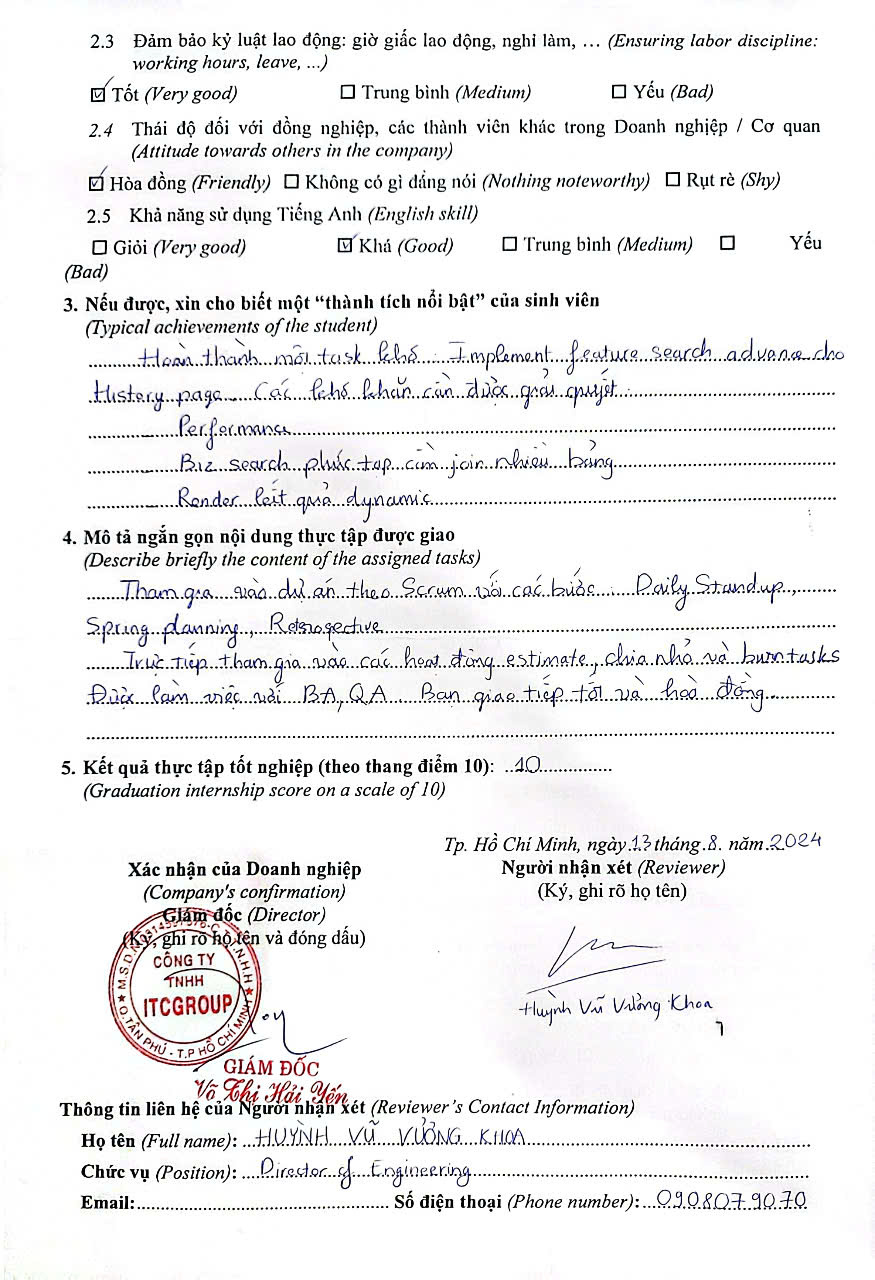 2.3 Đảm bảo kỷ luật lao động: giờ giấc lao động, nghỉ làm, … (Ensuring labor discipline:
working hours, leave, ...)
☑ Tốt (Very good) ☐ Trung bình (Medium) ☐ Yếu (Bad)
2.4 Thái độ đối với đồng nghiệp, các thành viên khác trong Doanh nghiệp / Cơ quan
(Attitude towards others in the company)
☑ Hòa đồng (Friendly) ☐ Không có gì đáng nói (Nothing noteworthy) ☐ Rụt rè (Shy)
2.5 Khả năng sử dụng Tiếng Anh (English skill)
☐ Giỏi (Very good) ☑ Khá (Good) ☐ Trung bình (Medium) ☐ Yếu
(Bad)
3. Nếu được, xin cho biết một “thành tích nổi bật” của sinh viên
(Typical achievements of the student)
Hoàn thành một task khó: Implement feature search advance cho
History page. Các khó khăn cần được giải quyết:
Performance
Biz search phức tạp cần join nhiều bảng
Render kết quả dynamic
4. Mô tả ngắn gọn nội dung thực tập được giao
(Describe briefly the content of the assigned tasks)
Tham gia vào dự án theo Scrum với các bước: Daily Standup,
Spring planning, Retrospective
Trực tiếp tham gia vào các hoạt động estimate, chia nhỏ và burn tasks
Được làm việc với BA, QA. Bạn giao tiếp tốt và hoà đồng
5. Kết quả thực tập tốt nghiệp (theo thang điểm 10): 10
(Graduation internship score on a scale of 10)
Tp. Hồ Chí Minh, ngày 13 tháng 8 năm 2024
Xác nhận của Doanh nghiệp Người nhận xét (Reviewer)
(Company's confirmation) (Ký, ghi rõ họ tên)
Giám đốc (Director)
(Ký, ghi rõ họ tên và đóng dấu)
CÔNG TY
TNHH
ITCGROUP
Q.TÂN PHÚ - T.P HỒ CHÍ MINH
Huỳnh Vũ Vương Khoa
GIÁM ĐỐC
Võ Thị Hải Yến
Thông tin liên hệ của Người nhận xét (Reviewer’s Contact Information)
Họ tên (Full name): HUỲNH VŨ VƯƠNG KHOA
Chức vụ (Position): Director of Engineering
Email: Số điện thoại (Phone number): 0908079070